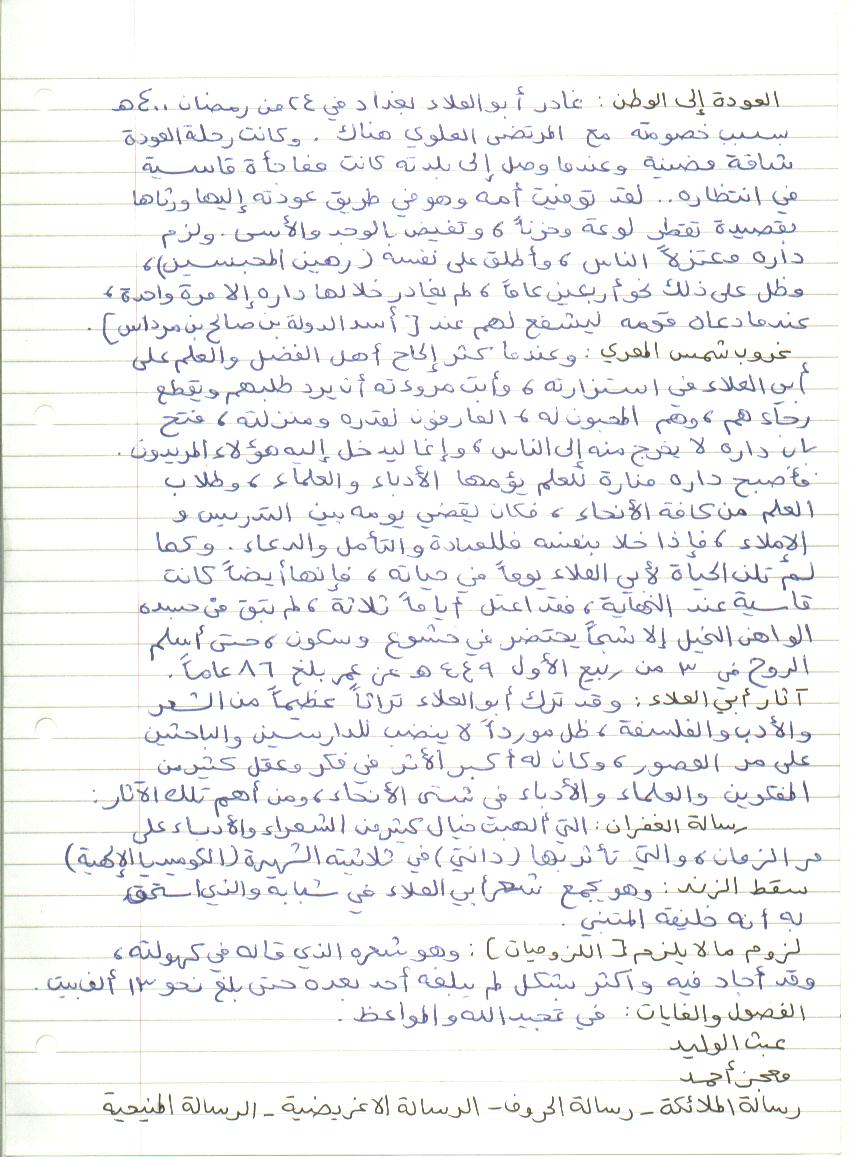 العودة إلى الوطن : غادر أبو العلاء بغداد في ٢٤ من رمضان ٤٠٠ هـ
بسبب خصومته مع المرتضى العلوي هناك . وكانت رحلة العودة
شاقة مضنية وعندما وصل إلى بلدته كانت مفاجأة قاسية
في انتظاره .. لقد توفيت أمه وهو في طريق عودته إليها ورثاها
بقصيدة تقطر لوعة وحزناً ، وتفيض بالوجد والأسى . ولزم
داره معتزلاً الناس ، وأطلق على نفسه (رهين المحبسين) ،
وظل على ذلك نحو أربعين عاماً ، لم يغادر خلالها داره إلا مرة واحدة ،
عندما دعاه قومه ليشفع لهم عند [أسد الدولة بن صالح بن مرداس] .
غروب شمس المعري : وعندما كثر إلحاح أهل الفضل والعلم على
أبي العلاء في استزارته ، وأبت مروءته أن يرد طلبهم ويقطع
رجاءهم ، وهم المحبون له ، العارفون لقدره ومنزلته ، فتح
باب داره لا يخرج منه إلى الناس ، وإنما ليدخل إليه هؤلاء المريدون .
فأصبح داره منارة للعلم يؤمها الأدباء والعلماء ، وطلاب
العلم من كافة الأنحاء ، فكان يقضي يومه بين التدريس و
الإملاء ، فإذا خلا بنفسه فللعبادة والتأمل والدعاء . وكما
لم تلن الحياة لأبي العلاء يوماً في حياته ، فإنها أيضاً كانت
قاسية عند النهاية ، فقد اعتل أياماً ثلاثة ، لم يتبق من جسده
الواهن النحيل إلا شبحاً يحتضر في خشوع وسكون ، حتى أسلم
الروح في ٣ من ربيع الأول ٤٤٩ هـ عن عمر بلغ ٨٦ عاماً .
آثار أبي العلاء : وقد ترك أبو العلاء تراثاً عظيماً من الشعر
والأدب والفلسفة ، ظل مورداً لا ينضب للدارسين والباحثين
على مر العصور ، وكان له أكبر الأثر في فكر وعقل كثير من
المفكرين والعلماء والأدباء في شتى الأنحاء ، ومن أهم تلك الآثار :
رسالة الغفران : التي ألهبت خيال كثير من الشعراء والأدباء على
مر الزمان ، والتي تأثر بها (دانتي) في ثلاثيته الشهيرة (الكوميديا الإلهية)
سقط الزند : وهو يجمع شعر أبي العلاء في شبابه والذي استحق
به أنه خليفة المتنبي .
لزوم ما لا يلزم [اللزوميات] : وهو شعره الذي قاله في كهولته ،
وقد أجاد فيه وأكثر بشكل لم يبلغه أحد بعده حتى بلغ نحو ١٣ ألف بيت .
الفصول والغايات : في تمجيد الله والمواعظ .
عبث الوليد
معجز أحمد
رسالة الملائكة – رسالة الحروف – الرسالة الاغريضية – الرسالة المنيحية